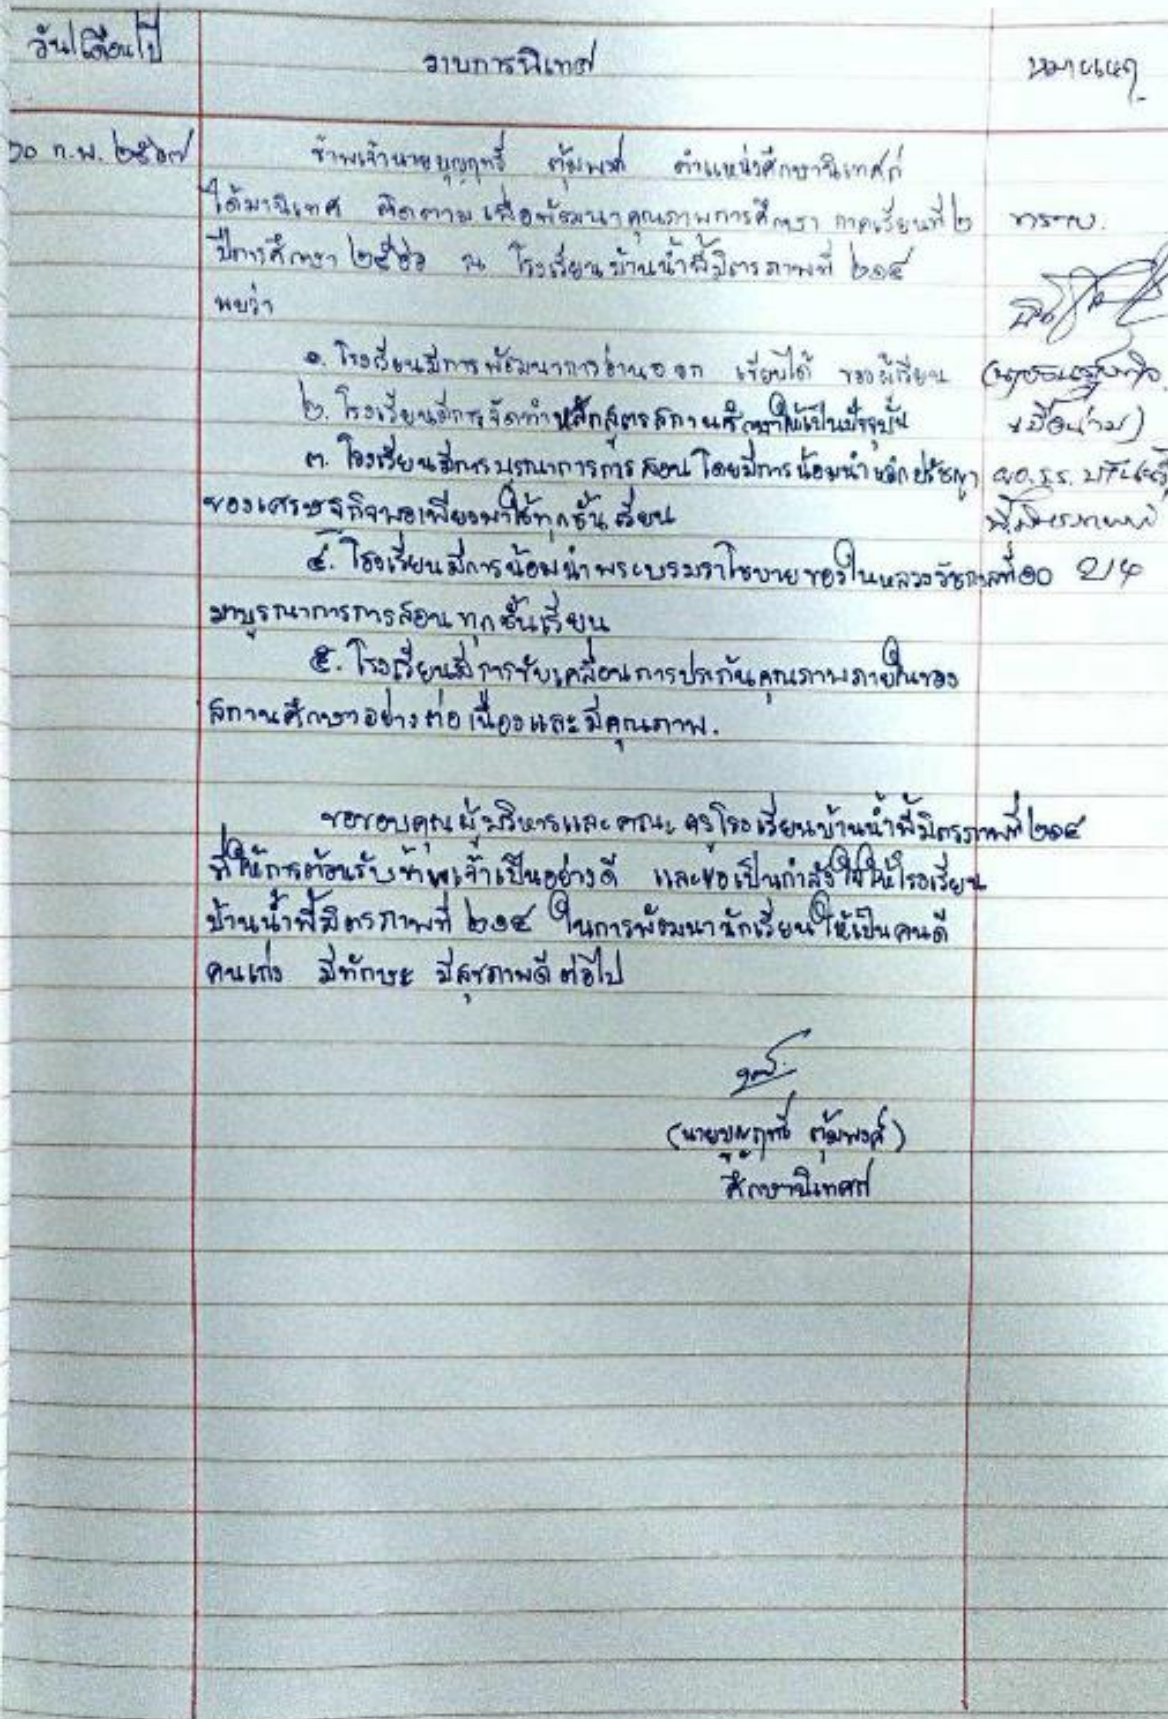 วัน/เดือน/ปี
รายการนิเทศ
หมายเหตุ
ก.พ. ๒๕๖๗
ข้าพเจ้านายบุญฤทธิ์ ตุ้มพงศ์ ตำแหน่งศึกษานิเทศก์
ได้มานิเทศ ติดตาม เพื่อพัฒนาคุณภาพการศึกษา ภาคเรียนที่ ๒
ปีการศึกษา ๒๕๖๖ ณ โรงเรียนบ้านน้ำพี้มิตรภาพที่ ๒๑๔
พบว่า
๑. โรงเรียนมีการพัฒนาการอ่านออก เขียนได้ ของผู้เรียน
๒. โรงเรียนมีการจัดทำหลักสูตรสถานศึกษาให้เป็นปัจจุบัน
๓. โรงเรียนมีการบูรณาการการสอน โดยมีการน้อมนำหลักปรัชญา
ของเศรษฐกิจพอเพียงมาใช้ทุกชั้นเรียน
๔. โรงเรียนมีการน้อมนำพระบรมราโชบายของในหลวงรัชกาลที่ ๑๐
มาบูรณาการการสอนทุกชั้นเรียน
๕. โรงเรียนมีการขับเคลื่อนการประกันคุณภาพภายในของ
สถานศึกษาอย่างต่อเนื่องและมีคุณภาพ.
ขอขอบคุณผู้บริหารและคณะครูโรงเรียนบ้านน้ำพี้มิตรภาพที่ ๒๑๔
ที่ให้การต้อนรับข้าพเจ้าเป็นอย่างดี และขอเป็นกำลังใจให้โรงเรียน
บ้านน้ำพี้มิตรภาพที่ ๒๑๔ ในการพัฒนานักเรียนให้เป็นคนดี
คนเก่ง มีทักษะ มีสุขภาพดีต่อไป
(นายบุญฤทธิ์ ตุ้มพงศ์)
ศึกษานิเทศก์
ทราบ.
ผอ.รร. บ้านน้ำ
พี้มิตรภาพที่
214